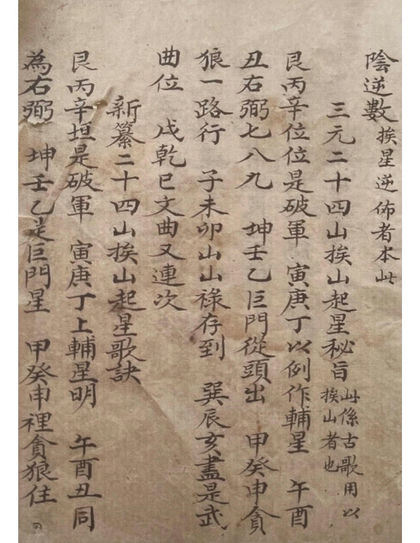 陰逆數 挨星逆佈者本此
三元二十四山挨山起星秘旨 此係古歌用以挨山者也
艮丙辛位位是破軍 寅庚丁以例作輔星 午酉
丑右弼七八九 坤壬乙巨門從頭出 甲癸申貪
狼一路行 子未卯山山祿存到 巽辰亥盡是武
曲位 戌乾巳文曲又連次
新纂二十四山挨山起星歌訣
艮丙辛垣是破軍 寅庚丁上輔星明 午酉丑同
為右弼 坤壬乙是巨門星 甲癸申裡貪狼住